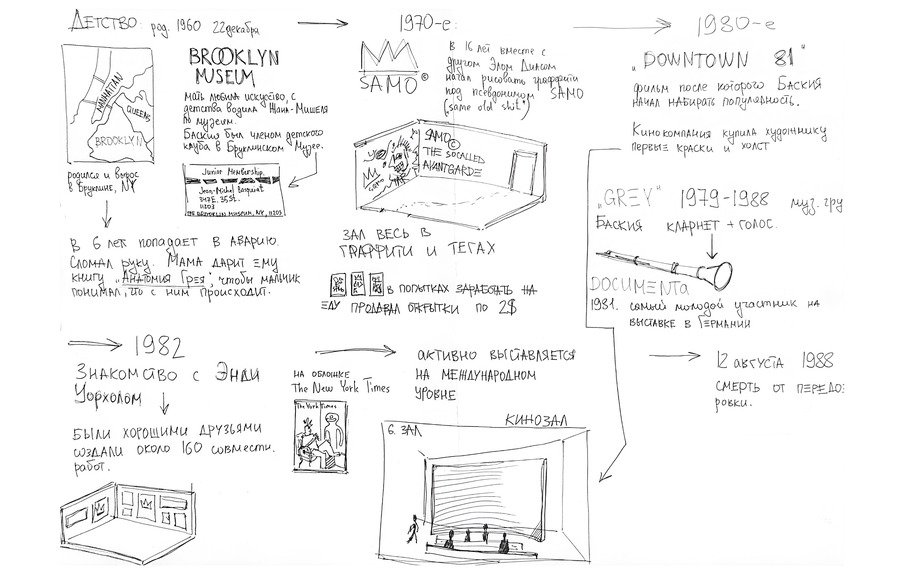 Детство: род. 1960 22 декабря
MANHATTAN
QUEENS
BROOKLYN
родился и вырос
в Бруклине, NY
BROOKLYN
MUSEUM
мать любила искусство, с
детства водила Жана-Мишеля
по музеям.
Баския был членом детского
клуба в Бруклинском Музее.
Junior Membership
Jean-Michel Basquiat
11203
BROOKLYN MUSEUM, NY, 11203
В 6 лет попадает в аварию.
Сломал руку. Мама дарит ему
книгу "Анатомия Грея", чтобы мальчик
понимал, что с ним происходит.
1970-е:
SAMO©
в 16 лет вместе с
другом Элом Диасом
начал рисовать граффити
под псевдонимом SAMO
(same old shit)
SAMO©
THE SOCALLED
AVANTGARDE
ЗАЛ ВЕСЬ В
ГРАФФИТИ И ТЕГАХ
в попытках заработать на
еду продавал открытки по 2$
1980-е
"DOWNTOWN 81"
фильм после которого Баския
начал набирать популярность.
Кинокомпания купила художнику
первые краски и холст
"GREY" 1979-1988 муз. гру
Баския кларнет + голос.
DOCUMENTA
1981. самый молодой участник на
выставке в Германии
1982
Знакомство с Энди
Уорхолом
Были хорошими друзьями
создали около 160 совместн.
работ.
на обложке
The New York Times
The York Times
активно выставляется
на международном
уровне
КИНОЗАЛ
6. ЗАЛ
12 августа 1988
смерть от передо
ровки.